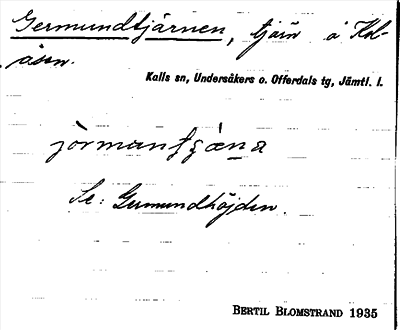 Germundtjärnen, tjärn å Kol-
åsen.
Kalls sn, Undersåkers o. Offerdals tg, Jämtl. l.
Se: Germundhöjden.
BERTIL BLOMSTRAND 1935